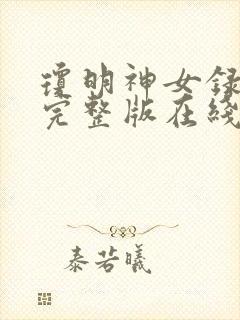 瓊明神女録
完整版在綫
泰若曦